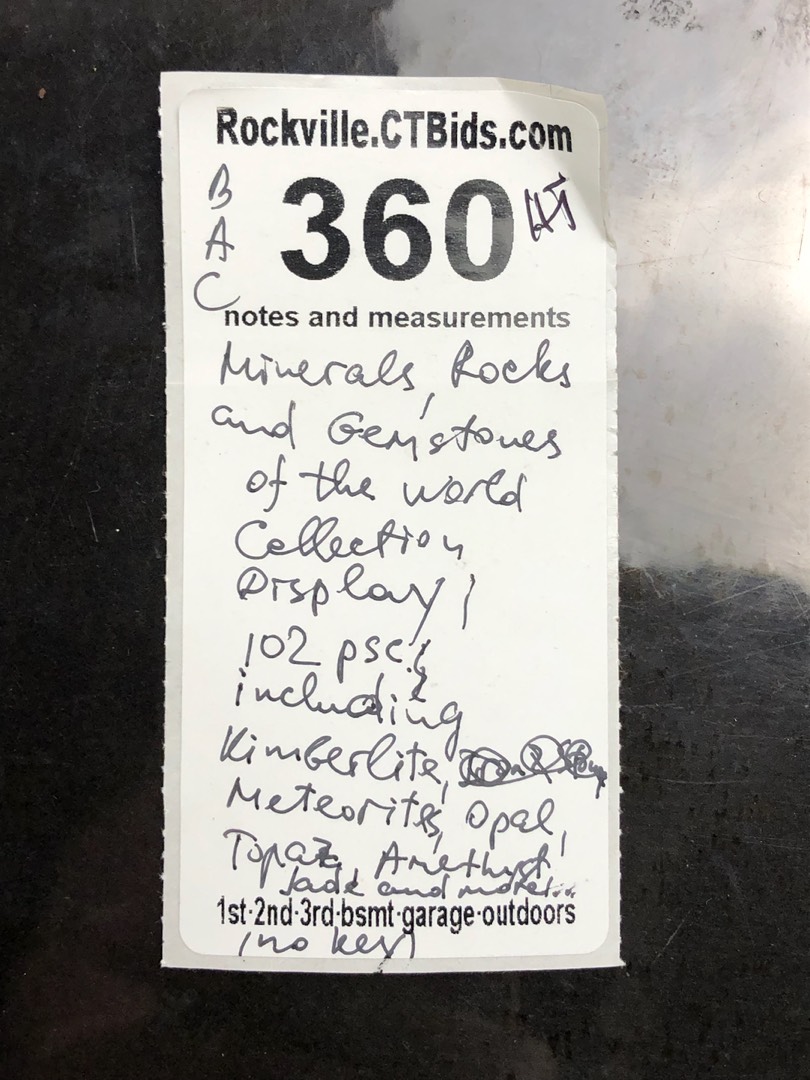 Rockville.CTBids.com
B
A
C
360
notes and measurements
Minerals, Rocks
and Gemstones
of the world
Collection
Display,
102 psc,
including
Kimberlite,
Meteorites, Opal,
Topaz, Amethyst,
Jade and more...
1st·2nd·3rd·bsmt·garage·outdoors
(no key)